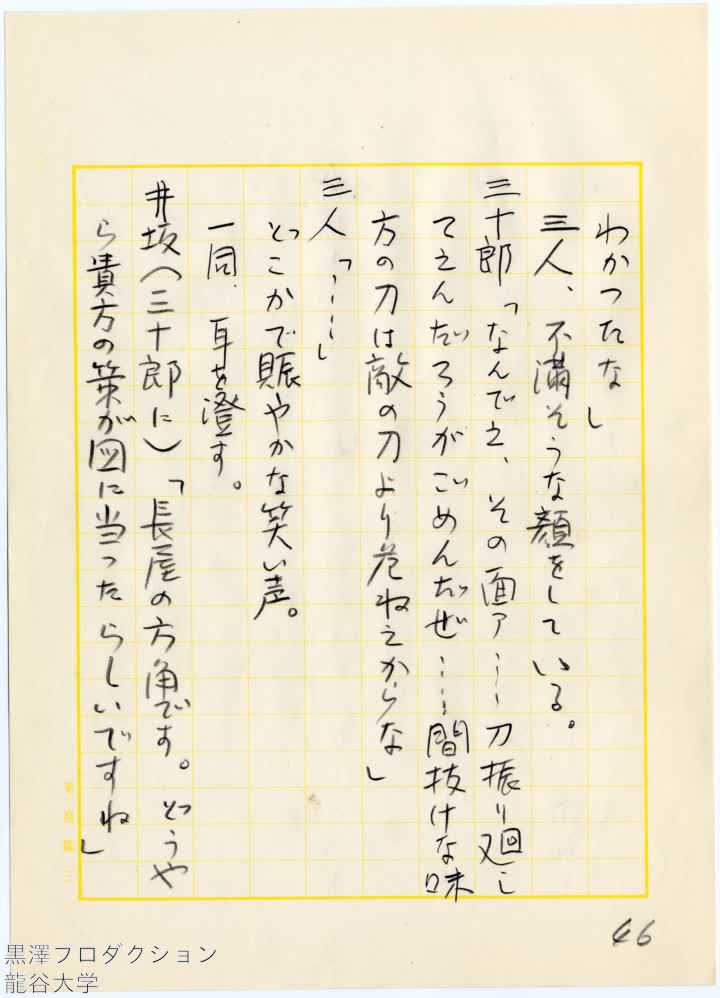 わかつたな」
三人、不満そうな顔をしている。
三十郎「なんでえ、その面ア……刀振り廻し
てえんだろうがごめんだぜ……間抜けな味
方の刀は敵の刀より危ねえからな」
三人「……」
どこかで賑やかな笑い声。
一同、耳を澄す。
井坂(三十郎に)「長屋の方角です。どうや
ら貴方の策が図に当ったらしいですね」
46
黒澤プロダクション
龍谷大学